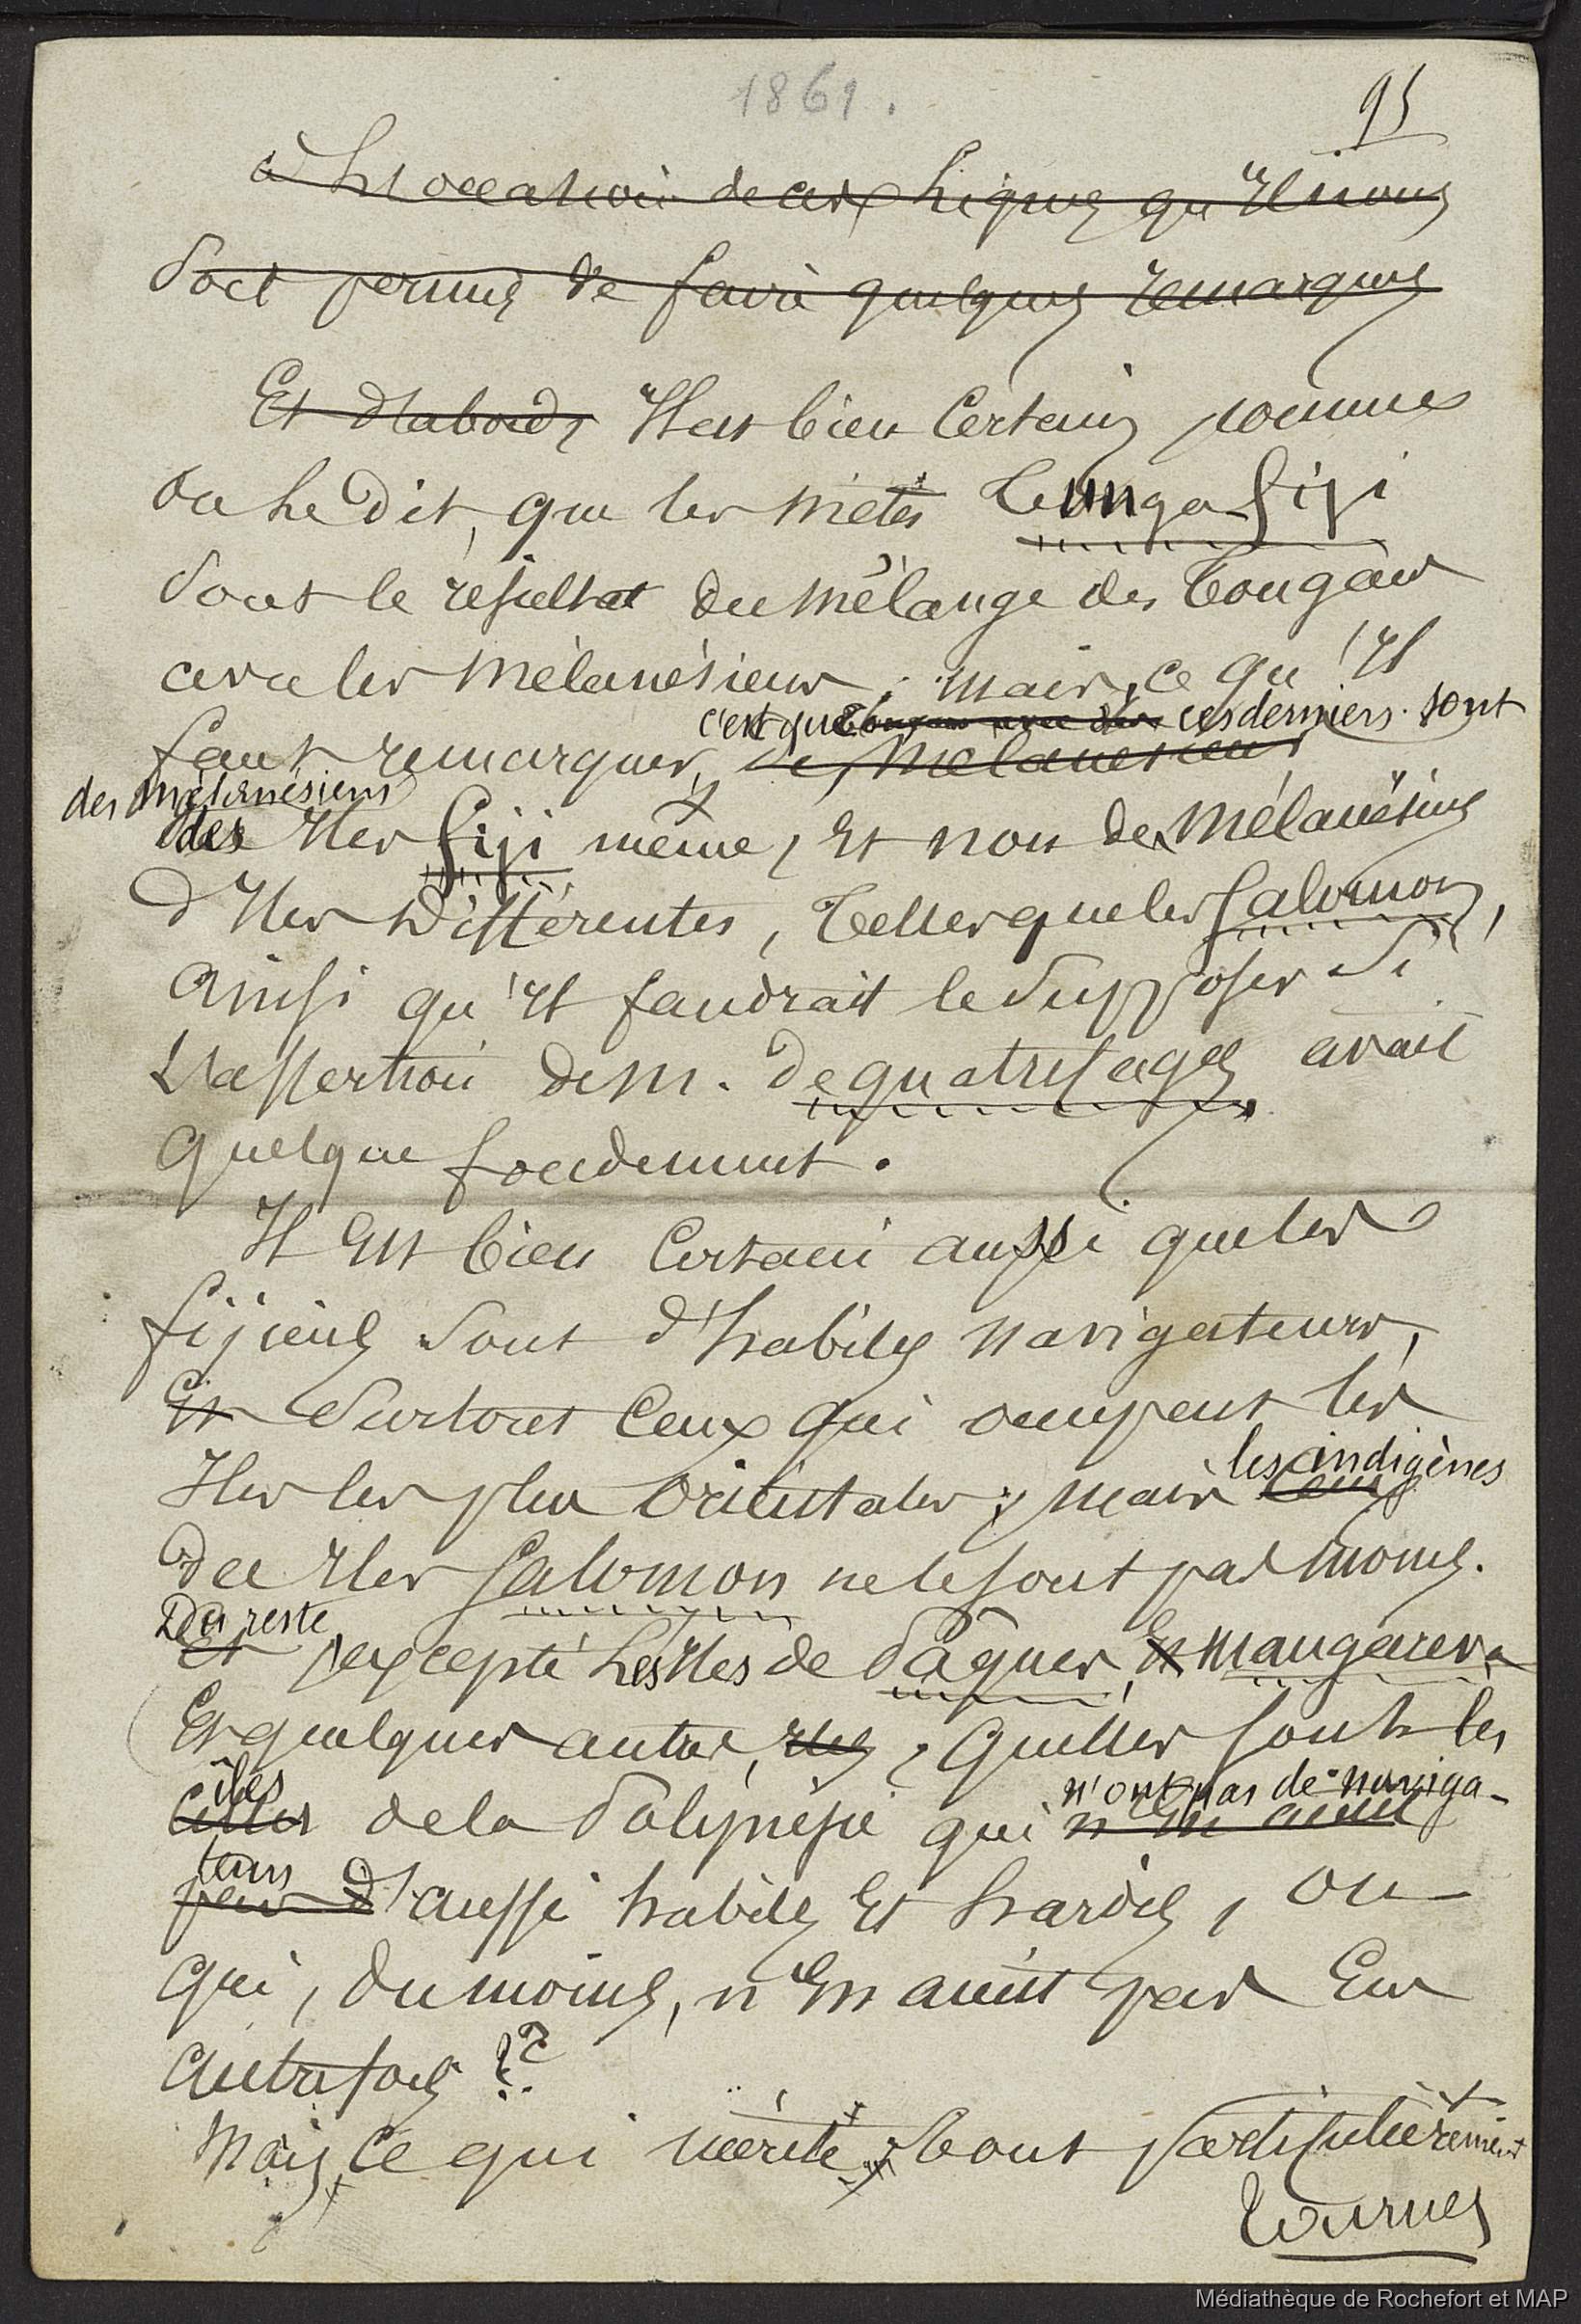 1861.
95
à l'occasion de ces lignes qu'il nous
soit permis de faire quelques remarques
Et d'abord, Il est bien certain, comme
on le dit, que les métis Tunga-fiji
sont le résultat du mélange des Tongans
avec les mélanésiens ; mais, ce qu'il
c'est que Tongans avec des ces derniers sont
faut remarquer, de mélanésiens
des mélanésiens
des iles fiji même, et non des mélanésiens
d'iles différentes, telles que les Salomon,
ainsi qu'il faudrait le supposer si
l'assertion de m. de quatrefages avait
quelque fondement.
Il est bien certain aussi que les
fijiens sont d'habiles navigateurs,
Et surtout ceux qui occupent les
iles les plus orientales ; mais ceux
les indigènes
des iles Salomon ne le sont pas moins.
Du reste
Et, excepté les iles de Pâques, et mangareva
et quelques autres, iles, quelles sont les
îles
celles de la Polynésie qui n'en aient
n'ont pas de naviga-
teurs
pas d'aussi habiles et hardis, ou
qui, du moins, n'en aient pas eu
autrefois ??
Mais, ce qui mérite tout particulièrement
Tournez
Médiathèque de Rochefort et MAP